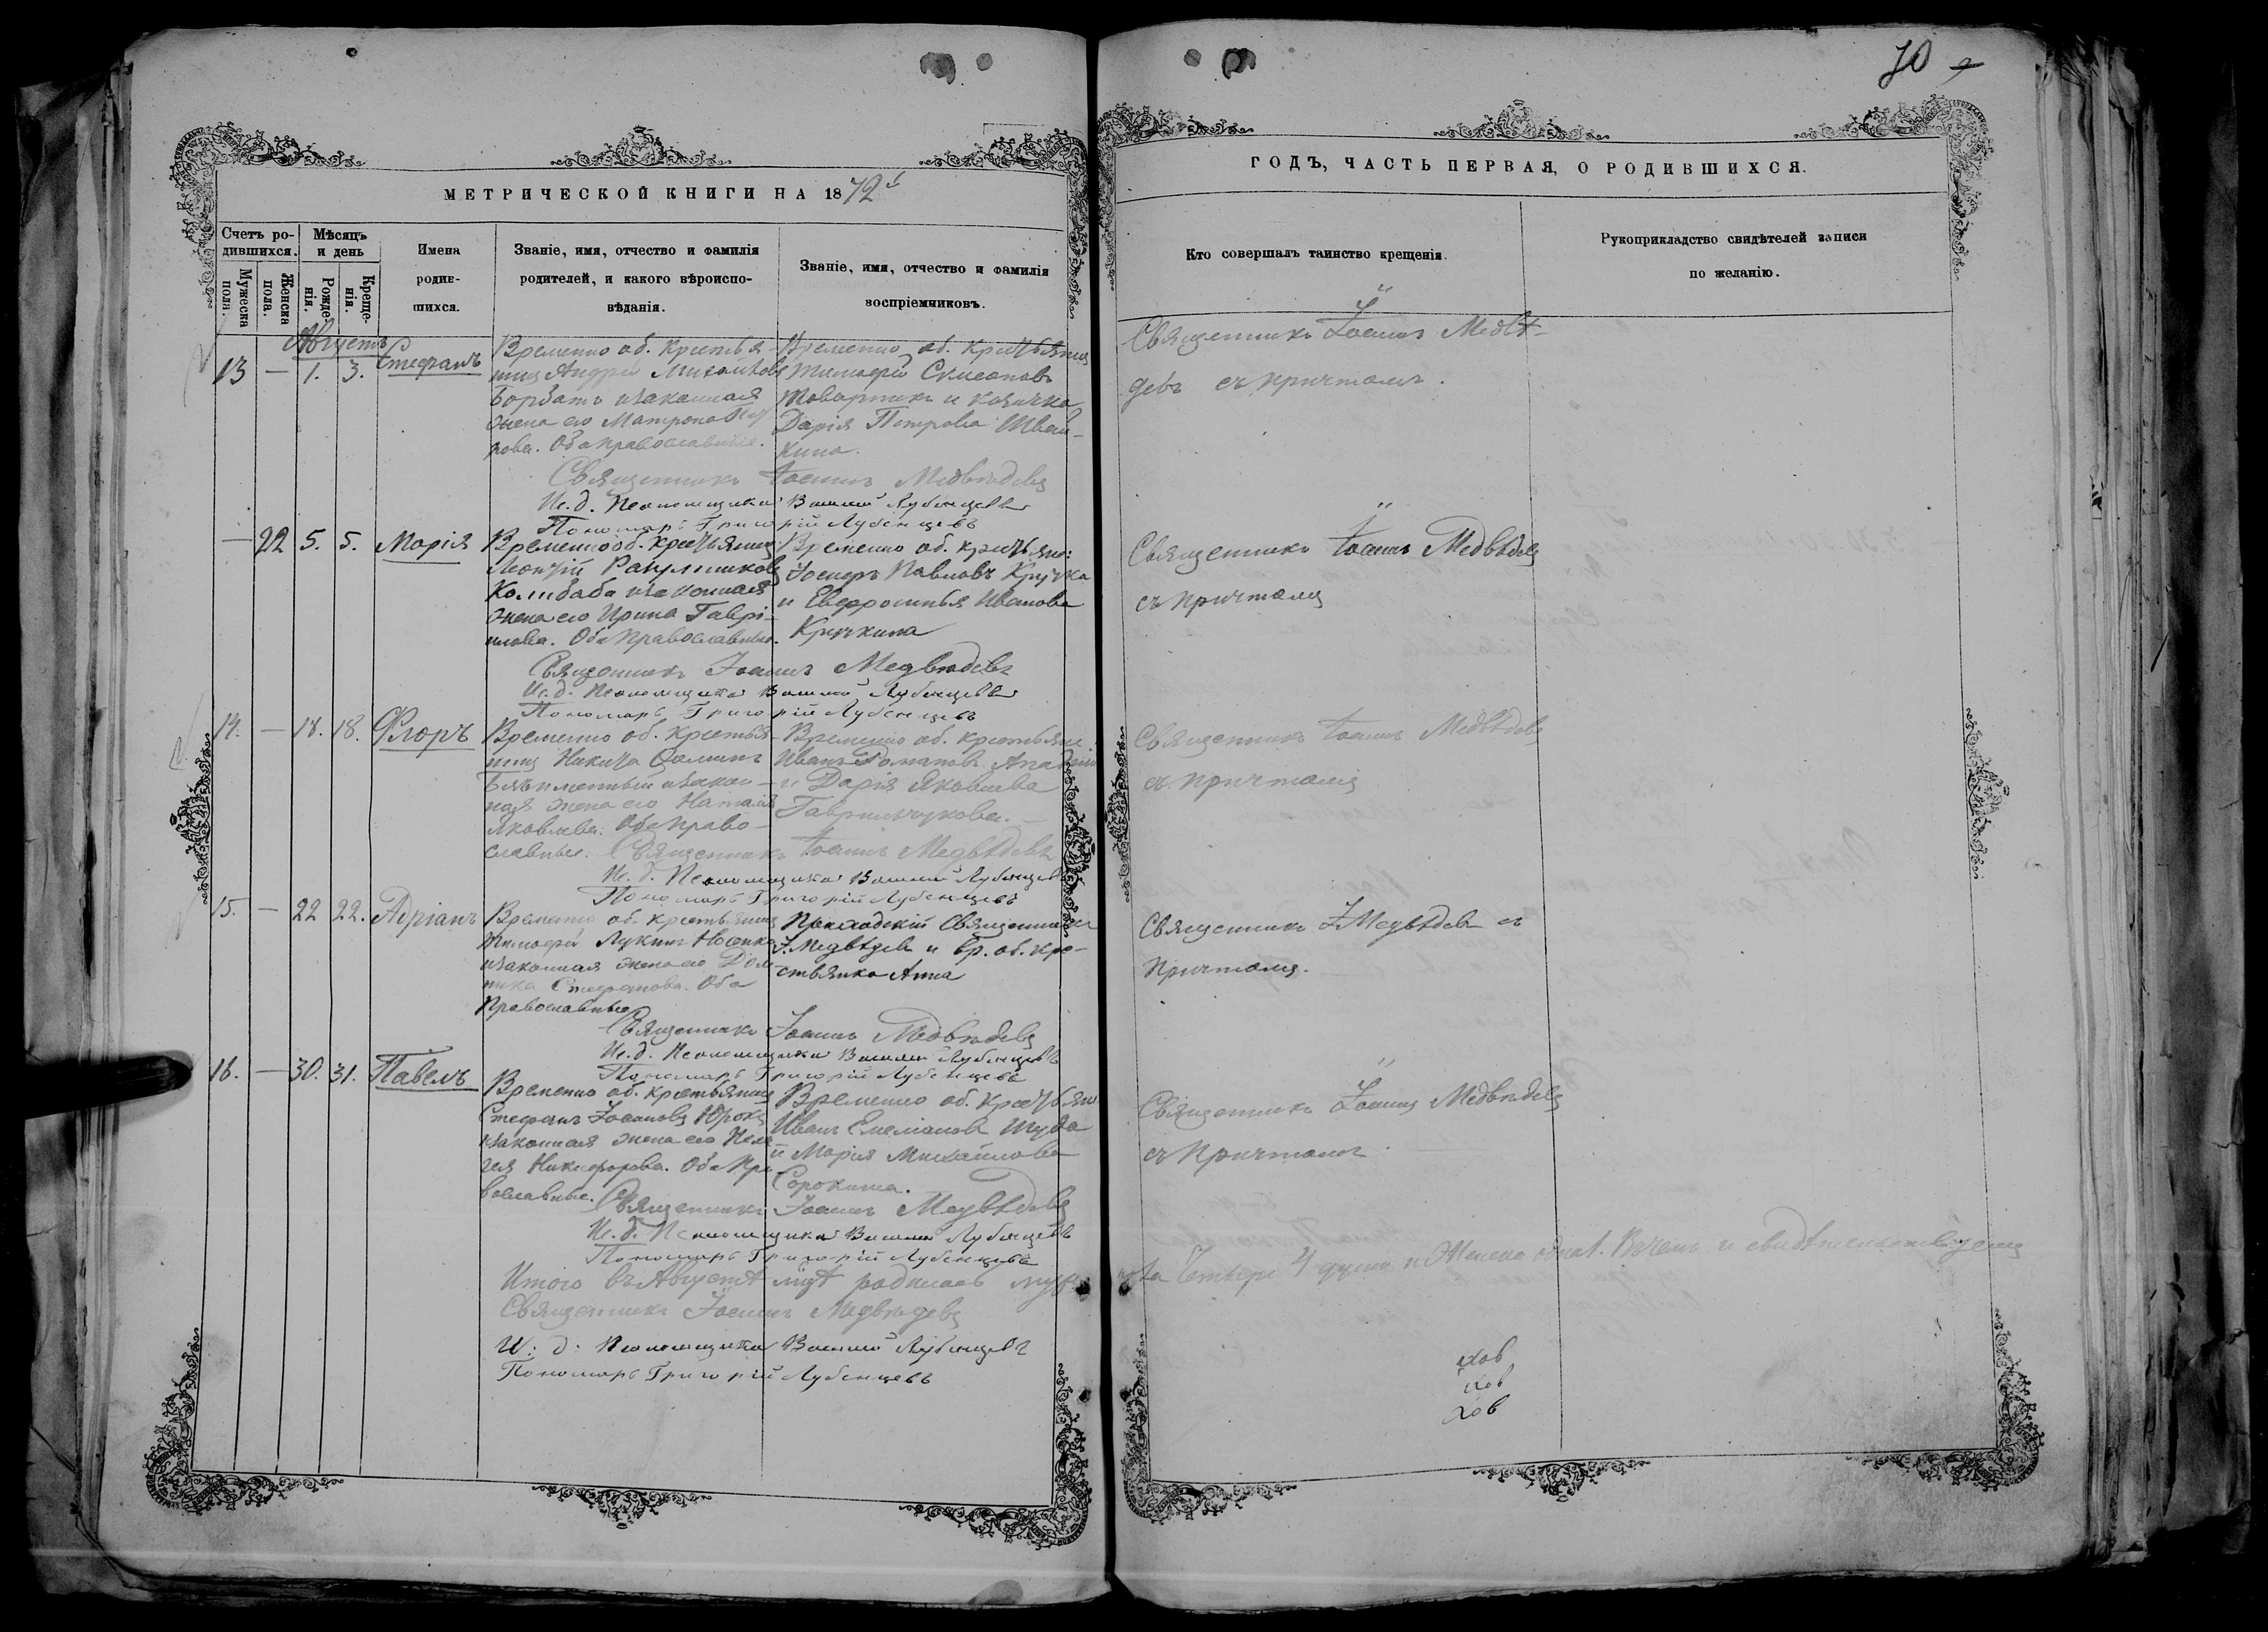 70
МЕТРИЧЕСКОЙ КНИГИ НА 1872
ГОДЪ, ЧАСТЬ ПЕРВАЯ, О РОДИВШИХСЯ.
Счетъ ро-
дившихся.
Мужеска
пола.
Женска
пола.
Мѣсяцъ
и день
Рожде-
нія.
Креще-
нія.
Имена
родив-
шихся.
Званіе, имя, отчество и фамилія
родителей, и какого вѣроиспо-
вѣданія.
Званіе, имя, отчество и фамилія
воспріемниковъ.
Кто совершалъ таинство крещенія.
Рукоприкладство свидѣтелей записи
по желанію.
Августъ
13 — 1. 3. Стефанъ
Временно об. крестья-
нинъ Андрей
Горбать и законная
жена его Матрона
рова. Оба православные.
Временно об. крестьянинъ
Тимофей
и козачка
Дарія Петрова Швай-
кина.
Священникъ Іоаннъ Медвѣ-
девъ съ причтомъ.
Священникъ Іоаннъ Медвѣдевъ
Ис. д. Псаломщика Василій Лубенцевъ
Пономарь Григорій Лубенцевъ
— 22 5. 5. Марія
Временно об. крестьянинъ
Леонтій
Колибаба и законная
жена его Ирина Гаврі-
илова. Оба православные.
Временно об. крестьяне:
Іосифъ Павловъ Кручка
и Евфросинья Иванова
Кручкина
Священникъ Іоаннъ Медвѣдевъ
съ причтомъ
Священникъ Іоаннъ Медвѣдевъ
Ис. д. Псаломщика Василій Лубенцевъ
Пономарь Григорій Лубенцевъ
14. — 18. 18. Флоръ
Временно об. крестья-
нинъ Никита Фоминъ
и закон-
ная жена его Наталія
Яковлева. Оба право-
славные.
Временно об. крестьяне
Иванъ Романовъ
и Дарія Яковлева
Гаврильчукова.
Священникъ Іоаннъ Медвѣдевъ
съ причтомъ
Священникъ Іоаннъ Медвѣдевъ
Ис. д. Псаломщика Василій Лубенцевъ
Пономарь Григорій Лубенцевъ
15. — 22 22. Адріанъ
Временно об. крестьянинъ
Тимофей Лукинъ Носенко
и законная жена его Дом-
ника Стефанова. Оба
Православные
Приходскій Священникъ
І. Медвѣдевъ и вр. об. кре-
стьянка Анна
Священникъ І. Медвѣдевъ съ
Причтомъ.
Священникъ Іоаннъ Медвѣдевъ
Ис. д. Псаломщика Василій Лубенцевъ
Пономарь Григорій Лубенцевъ
16. — 30. 31. Павелъ
Временно об. крестьянинъ
Стефанъ
и законная жена его Пела-
гея Никифорова. Оба Пра-
вославные.
Временно об. крестьяне
Иванъ Емеліановъ Шуда
и Марія Михайлова
Сорокина.
Священникъ Іоаннъ Медвѣдевъ
съ Причтомъ
Священникъ Іоаннъ Медвѣдевъ
Ис. д. Псаломщика Василій Лубенцевъ
Пономарь Григорій Лубенцевъ
Итого въ Августѣ родилось муж.
пола Четыре 4 души и свидѣтельствуемъ
Священникъ Іоаннъ Медвѣдевъ
И: д: Псаломщика Василій Лубенцевъ
Пономарь Григорій Лубенцевъ